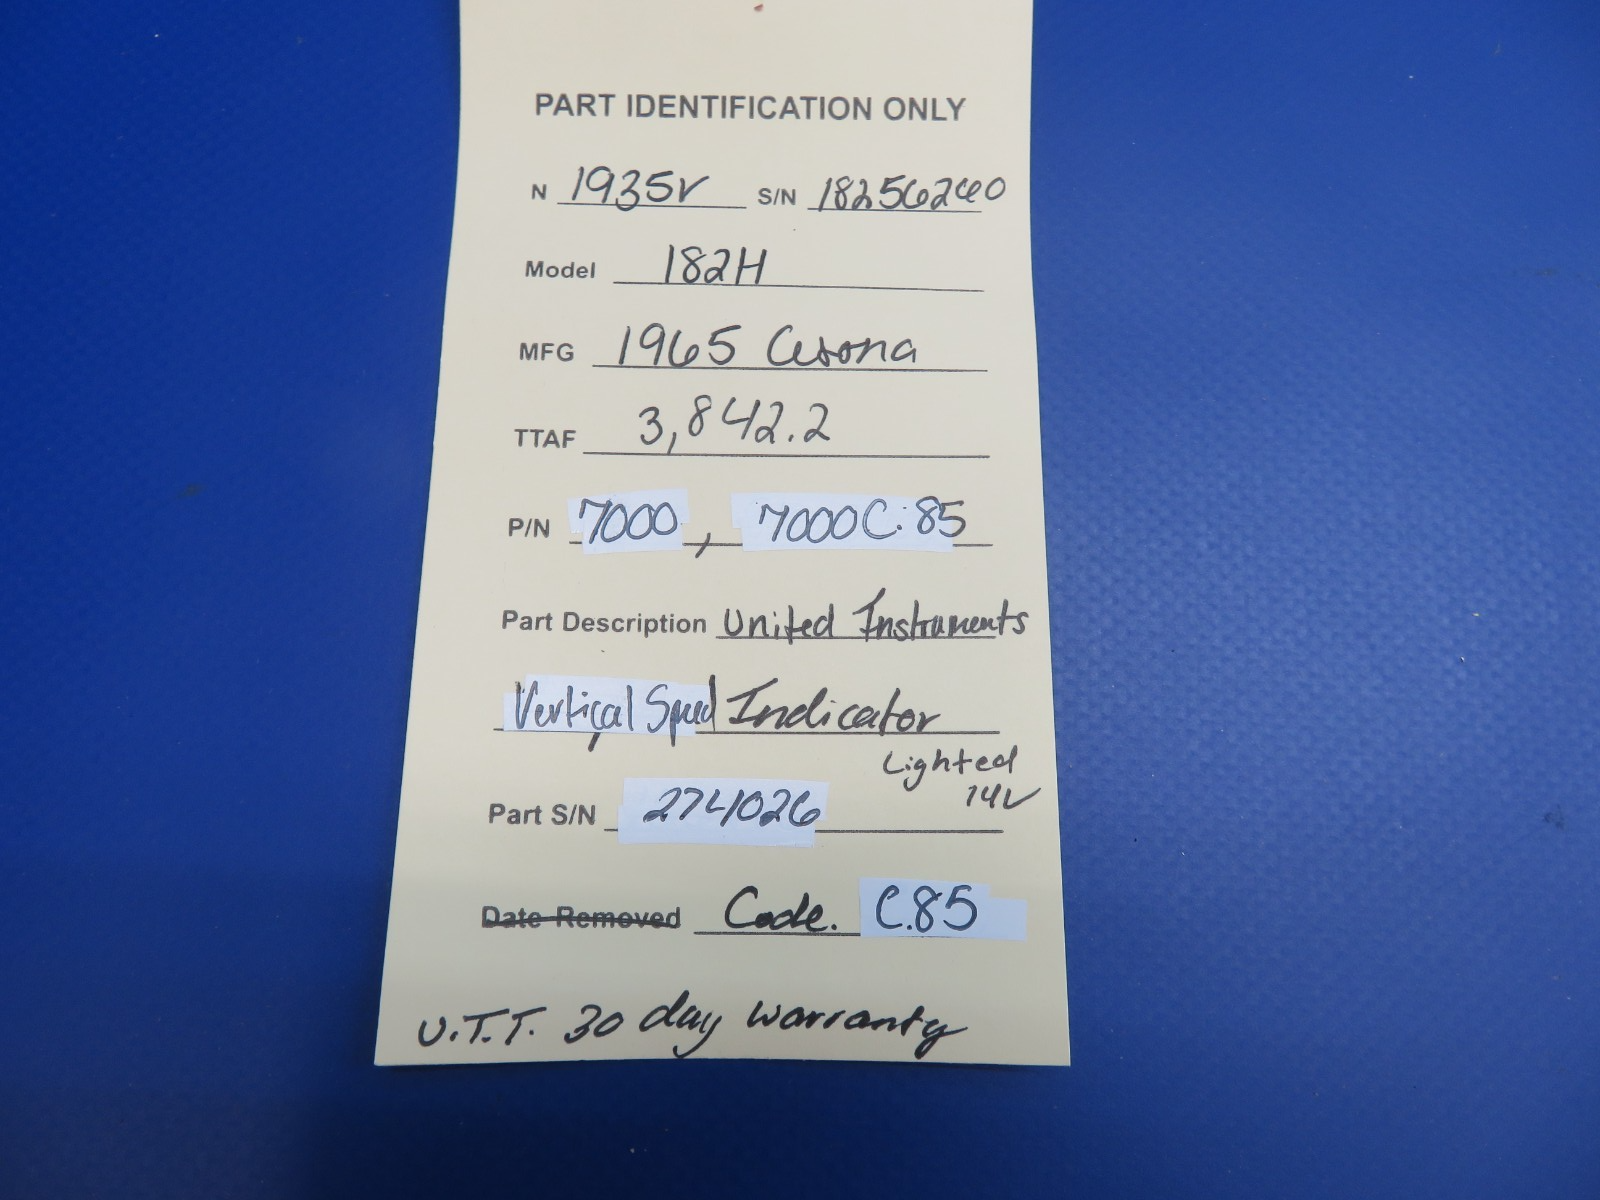 PART IDENTIFICATION ONLY
N 1935V S/N 18256240
Model 182H
MFG 1965 Cessna
TTAF 3,842.2
P/N 7000, 7000 C.85
Part Description United Instruments
Vertical Speed Indicator
Lighted
14V
Part S/N 274026
Date Removed Code. C.85
U.T.T. 30 day warranty